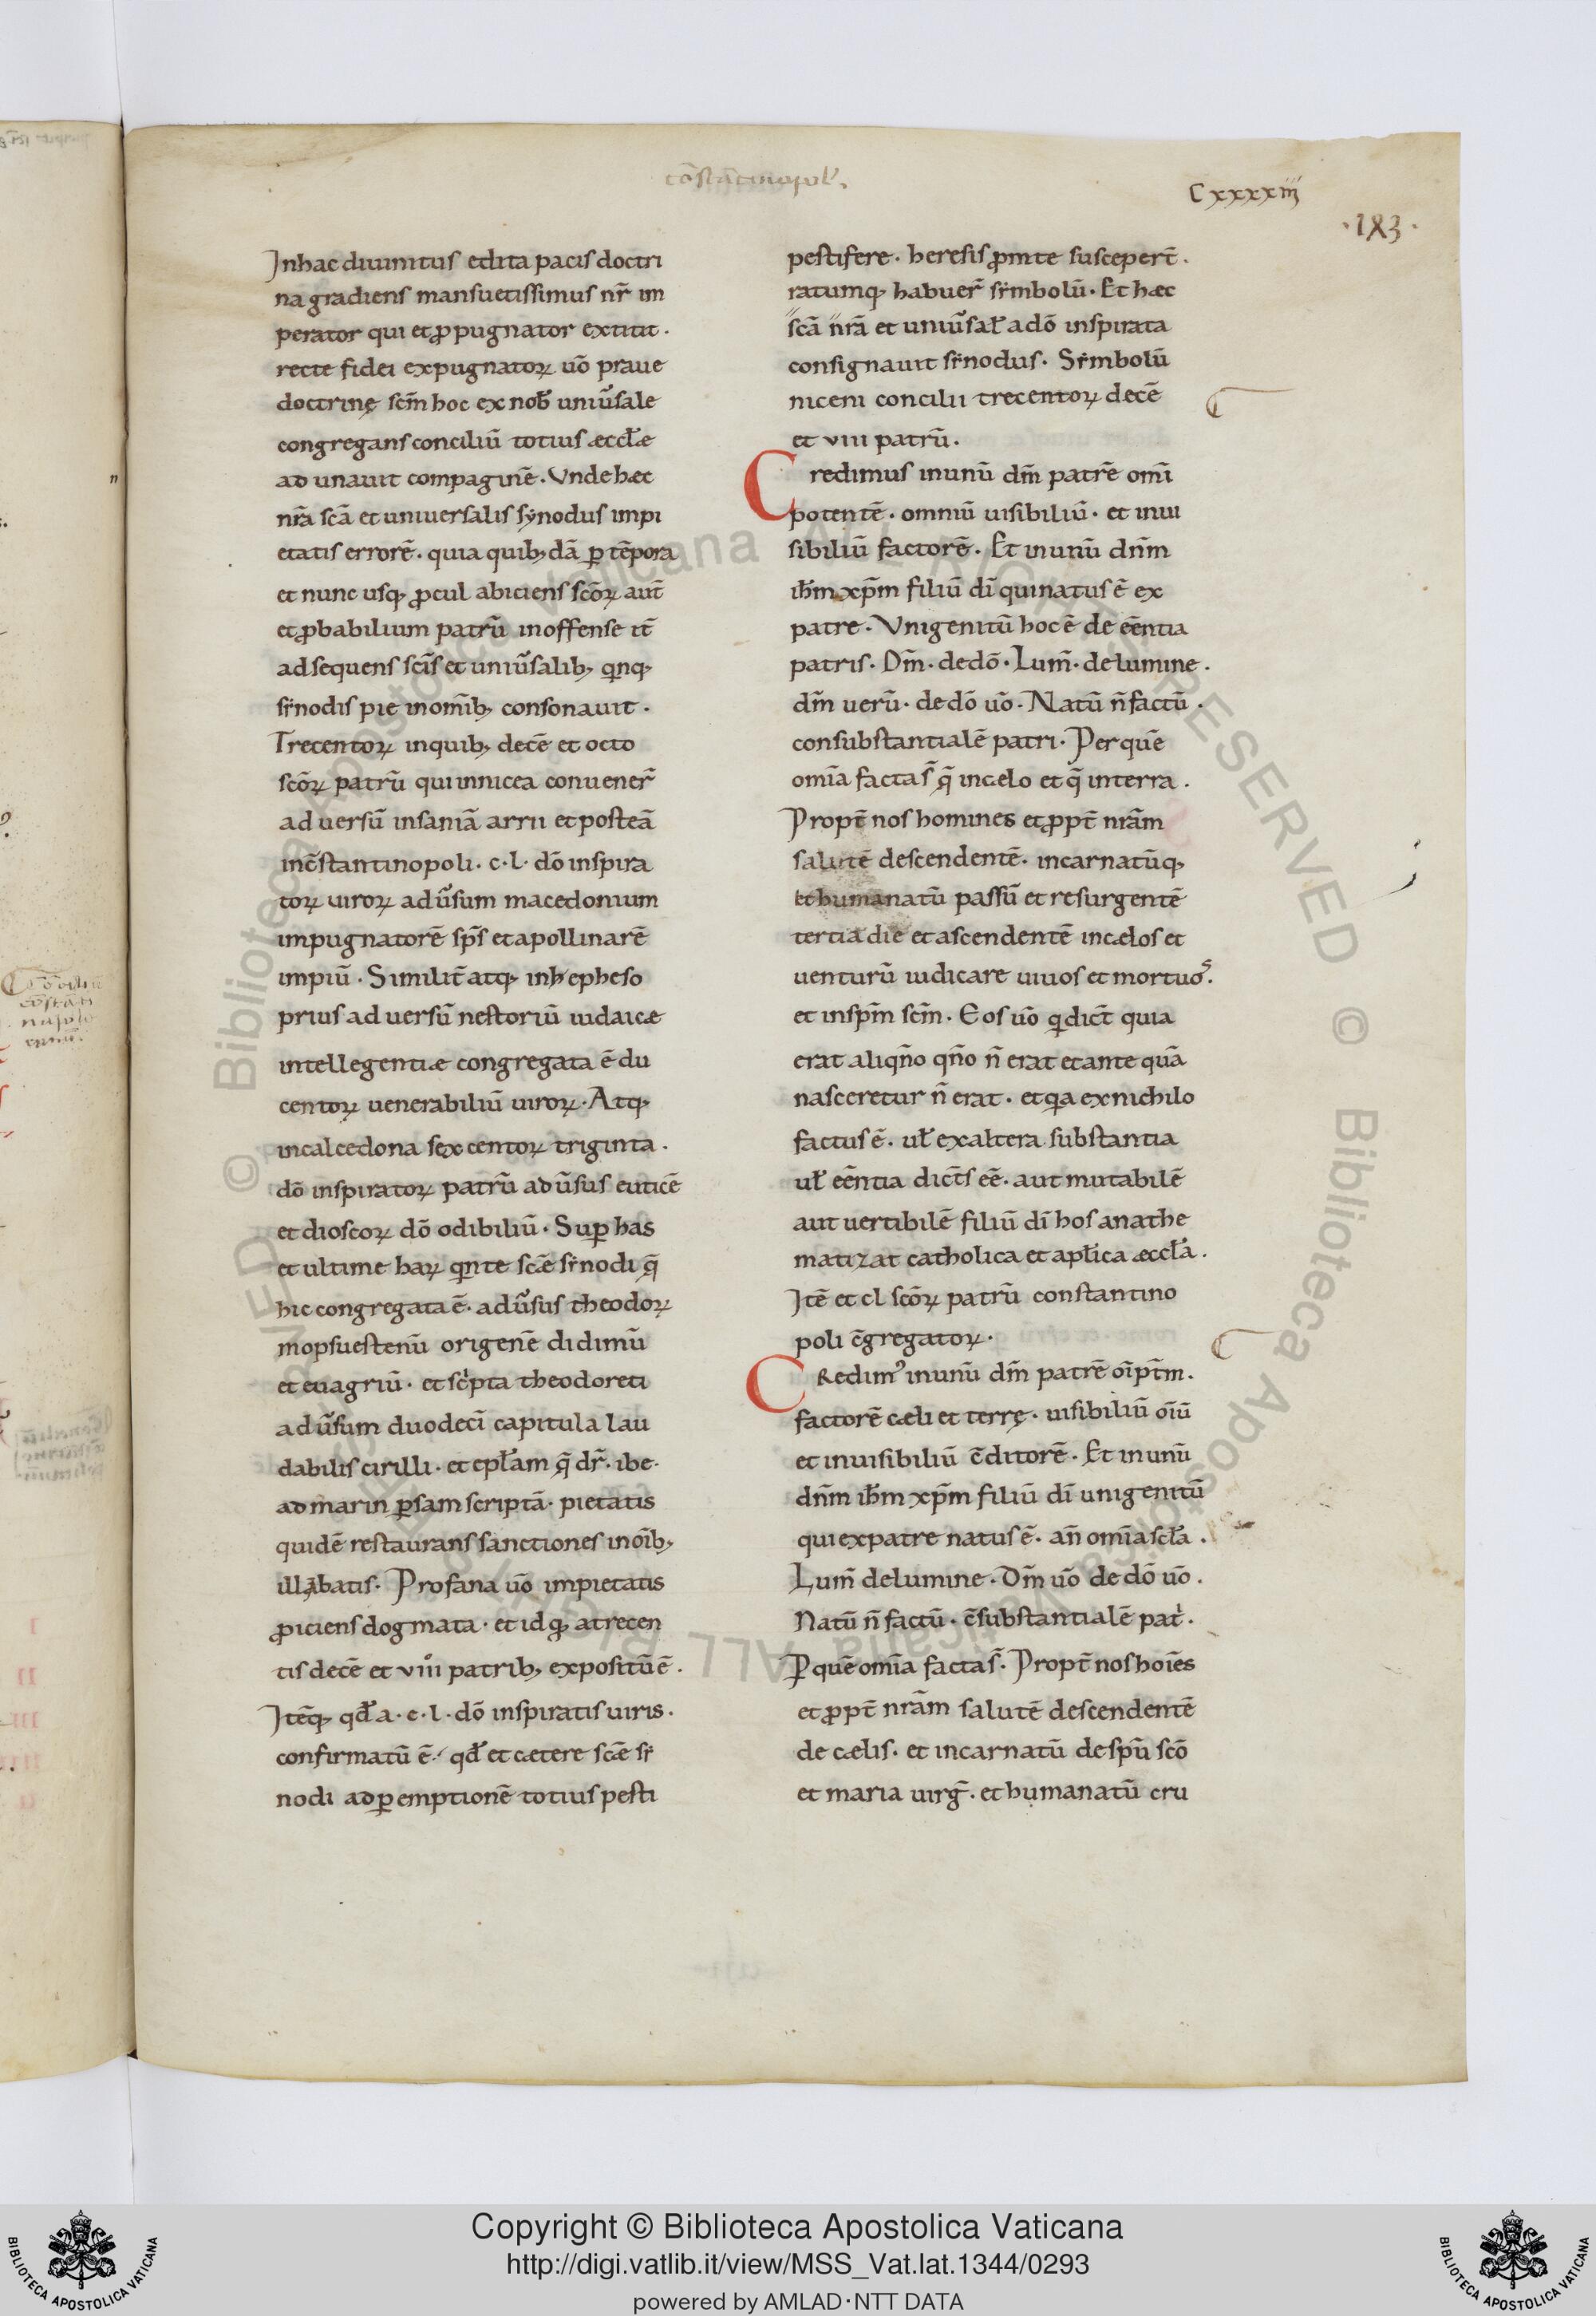 cōstātinopol'.
Cxxxxiij
·183·
Inhac diuinitus edita pacis doctri
na gradiens mansuetissimus nr̄ im
perator qui et ꝓpugnator extitit·
recte fidei expugnatoꝝ uō praue
doctrinę scm̄ hoc ex nob̄ uniūsale
congregans conciliū totius æccl̄æ
ad unauit compaginē· Vnde hæc
nr̄a scā et uniuersalis sẏnodus impi
etatis errorē· quia quibꝫdā ꝑ tēpora
et nunc usqꝫ ꝓcul abiciens scōꝝ aut̄
et ꝓbabilium patrū inoffense it̄
adsequens scīs et uniūsalibꝫ qnqꝫ
sẏnodis pie inomībꝫ consonauit·
Trecentoꝝ inquibꝫ decē et octo
scōꝝ patrū qui innicea conuener̄
ad uersū insaniā arrii et posteā
inc̄stantinopoli· c·l· dō inspira
toꝝ uiroꝝ adūsum macedonium
impugnatorē sps̄ et apollinarē
impiū· Similit̄ atqꝫ inh epheso
prius ad uersū nestoriū iudaicæ
intellegentiæ congregata ē du
centoꝝ uenerabiliū uiroꝝ· Atqꝫ
incalcedona sexcentoꝝ triginta·
dō inspiratoꝝ patrū ad ūsus euticē
et dioscoꝝ dō odibiliū· Suꝑ has
et ultime haꝝ qnte scǣ sẏnodi q̄
hic congregata ē· adūsus theodoꝝ
mopsuestenū origenē didimū
et euagriū· et scripta theodoreti
adūsum duodecī capitula lau
dabilis cirilli· et epl̄am q̄ dr̄· ibe·
ad marin ꝑsam scriptā· pietatis
quidē restaurans sanctiones inoībꝫ
illabatis· Profana uō impietatis
ꝓiciens dogmata· et id qꝫ a trecen
tis decē et viii patribꝫ expositū ē·
Itēqꝫ qd̄ a· c·l· dō inspiratis uiris·
confirmatū ē· qd̄ et cætere scǣ sẏ
nodi ad ꝑemptionē totius pesti
pestifere· heresis ꝓmte susceper̄t·
ratumqꝫ habuer̄ sẏmbolū· Et hæc
scā nr̄a et uniūsal̄ adō inspirata
consignauit sẏnodus· Sẏmbolū
niceni concilii trecentoꝝ decē
et viii patrū·
Credimus inunū dm̄ patrē omī
potentē· omniū uisibiliū· et inui
sibiliū factorē· Et inunū dnm̄
ihm̄ xpm̄ filiū dī quinatus ē ex
patre· Vnigenitū hoc ē de eēntia
patris· Dm̄· dedō· Lum̄· delumine·
dm̄ uerū· dedō uō· Natū n̄ factū·
consubstantialē patri· Per quē
omīa facta s̄ q̄ incelo et q̄ interra·
Propt̄ nos homines et ꝓpt̄ nrām
salutē descendentē· incarnatūqꝫ
et humanatū passū et resurgentē
tertia die et ascendentē incælos et
uenturū iudicare uiuos et mortuos·
et inspm̄ scm̄· Eos uō qdict̄ quia
erat aliqn̄o qn̄o n̄ erat et ante quā
nasceretur n̄ erat· et qa exnichilo
factus ē· ul̄ exaltera substantia
ul̄ eēntia dict̄s eē· aut mutabilē
aut uertibilē filiū dī hos anathe
matizat catholica et apl̄ica æccl̄a·
Itē et cl scōꝝ patrū constantino
poli c̄gregatoꝝ·
CRedimꝰ inunū dm̄ patrē oīpt̄m·
factorē cæli et terrę· uisibiliū oīū
et inuisibiliū c̄ditorē· Et inunū
dnm̄ ihm̄ xpm̄ filiū dī unigenitū
qui expatre natus ē· an̄ omīa scl̄a·
Lum̄ delumine· Dm̄ uō de dō uō·
Natū n̄ factū· c̄substantialē pat̄·
Ꝑ quē omīa facta s̄· Propt̄ nos hoīes
et ꝓpt̄ nrām salutē descendentē
de cælis· et incarnatū de spū scō
et maria uirḡ· et humanatū cru
Copyright © Biblioteca Apostolica Vaticana
http://digi.vatlib.it/view/MSS_Vat.lat.1344/0293
powered by AMLAD·NTT DATA